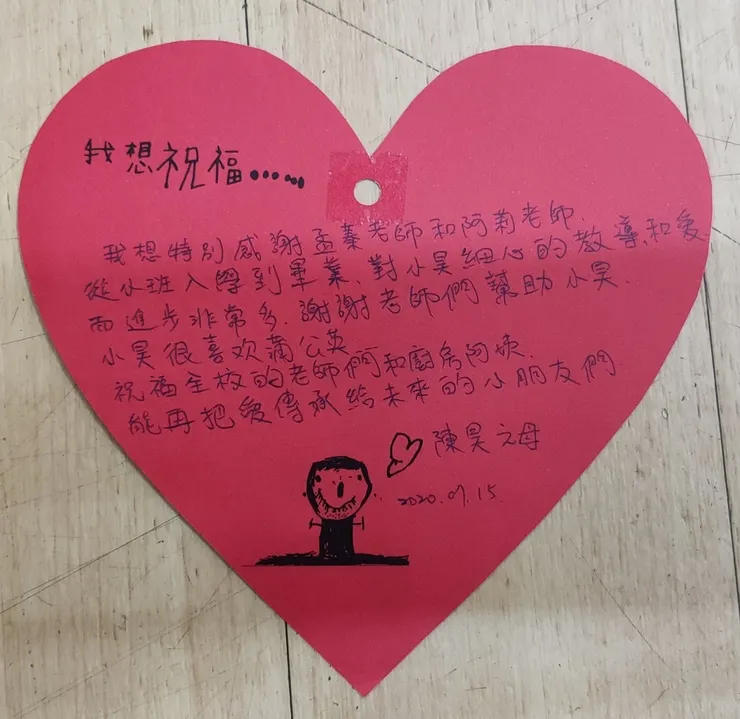 我想祝福……
我想特別感謝孟蓁老師和阿莉老師.
從小班入學到畢業、對小昊細心的教導和愛
而進步非常多.謝謝老師們幫助小昊.
小昊很喜欢蒲公英
祝福全校的老師們和廚房阿姨.
能再把愛傳承給未來的小朋友們
陳昊之母
2020.07.15.